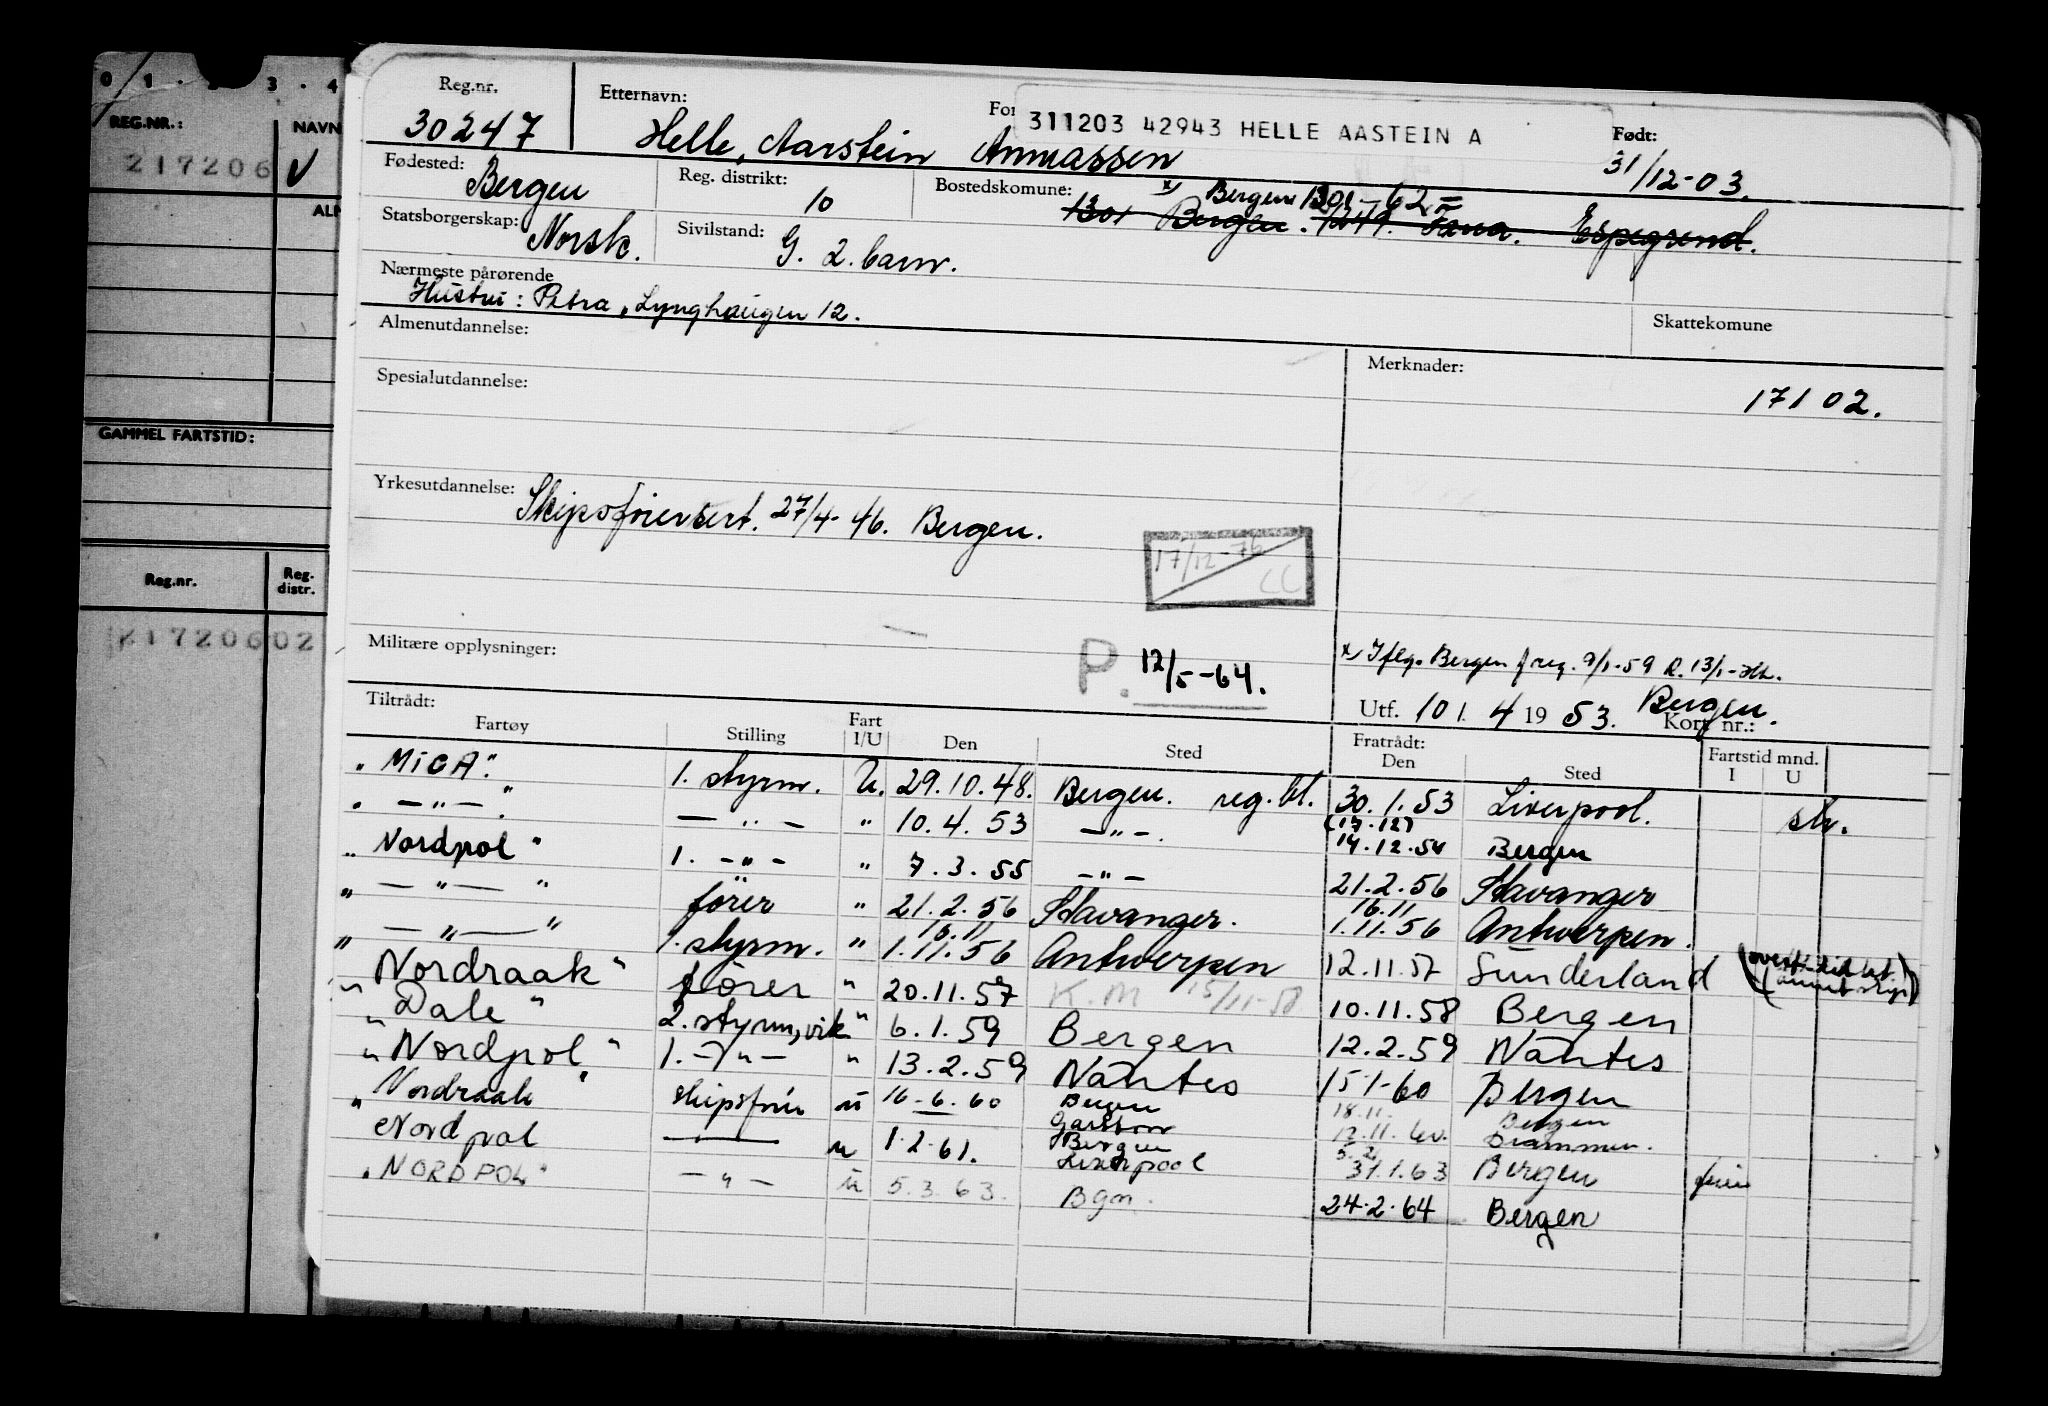 0 1 · 3 · 4
REG.NR.:
NAVN
217206
GAMMEL FARTSTID:
Reg.nr.
Reg. distr.
21720602
Reg.nr.
30247
Etternavn:
Helle, Aarstein Anmassen
311203 42943 HELLE AASTEIN A
Født:
31/12-03.
Fødested:
Bergen
Reg. distrikt:
10
Bostedskomune:
x) Bergen 1301 - 62
1301 Bergen. 1249. Fana. Espegrend.
Statsborgerskap:
Norsk.
Sivilstand:
G. 2. barn.
Nærmeste pårørende
Hustru: Petra, Lynghaugen 12.
Skattekomune
Almenutdannelse:
Merknader:
17102.
Spesialutdannelse:
Yrkesutdannelse:
Skipsførersert. 27/4-46. Bergen.
17/12-76
CC
Militære opplysninger:
P. 12/5-64.
x) Iflg. Bergen freg. 9/1-59 R. 13/1-
Utf. 10/. 4 19 53. Bergen.
Kort nr.:
Tiltrådt:
Fartøy
Stilling
Fart I/U
Den
Sted
Fratrådt:
Den
Sted
Fartstid mnd.
I U
"MiCA" 1. styrm. U. 29.10.48. Bergen. reg. bl. 30.1.53 Liverpool. str.
" — " — " — " — " 10.4.53 — " — (17.12) 14.12.54 Bergen
"Nordpol" 1. — " — " 7.3.55 — " — 21.2.56 Stavanger
" — " — " fører " 21.2.56 Stavanger. 16.11 1.11.56 Antwerpen.
" — " — " 1. styrm. " 16.11 1.11.56 Antwerpen 12.11.57 Sunderland
"Nordraak" fører " 20.11.57 K.M 15/11-58 10.11.58 Bergen
"Dale" 2. styrm, vik " 6.1.59 Bergen 12.2.59 Nantes
"Nordpol" 1. — " — " 13.2.59 Nantes 15-1-60 Bergen
"Nordraak" skipsfører u 16-6.60 Bergen Garston 18.11. 12.11.60. Bergen Drammen.
Nordpol — u 1.2.61. Bergen Liverpool 5.2 31.1.63 Bergen
"NORDPOL" — " — u 5.3.63. Bgn. 24.2.64 Bergen